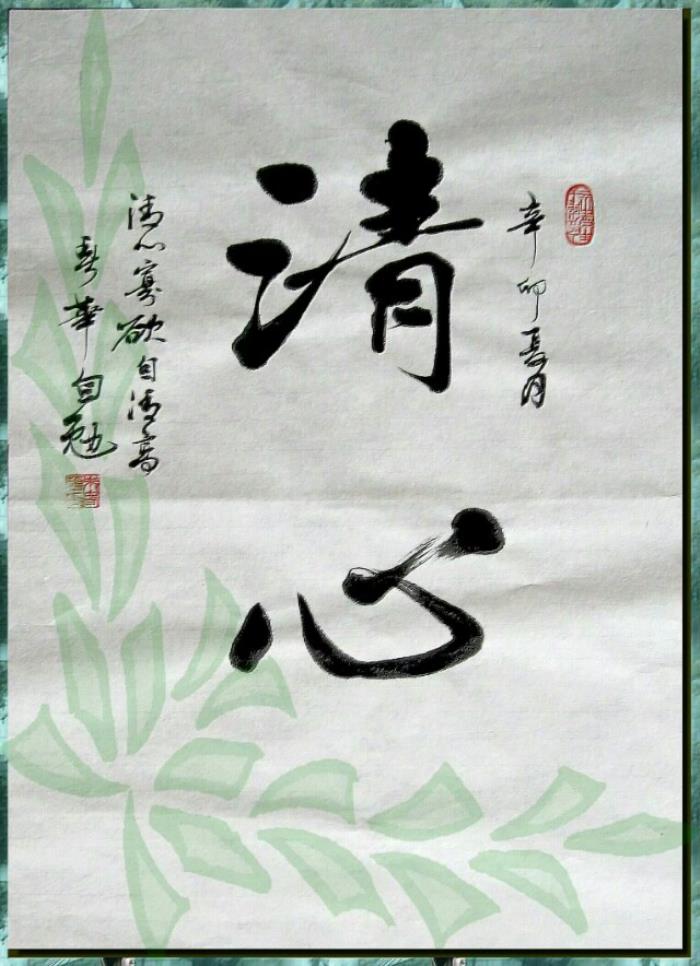 辛卯夏月
清心
清心寡欲自清高
春華自勉